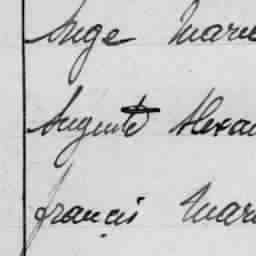 Ange Marie
Auguste Alexan
francis Mari